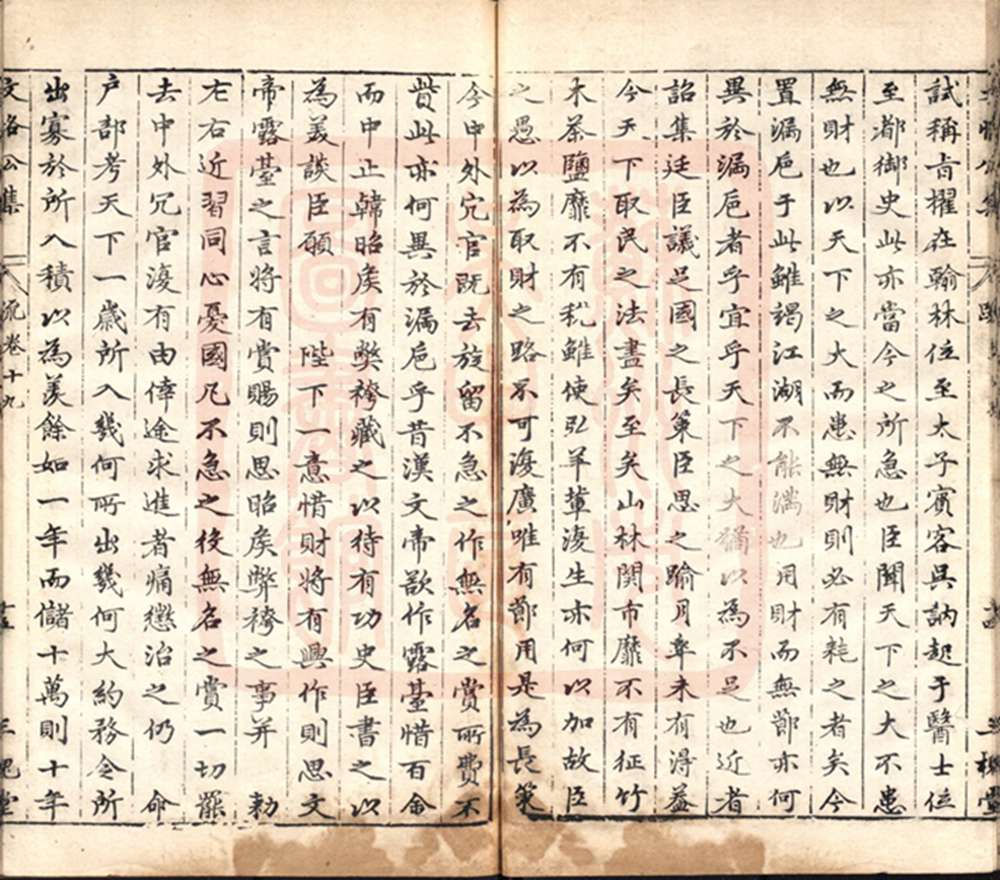 試稱旨擢在翰林位至太子賓客吳訥起于醫士位
至都御史此亦當今之所急也臣聞天下之大不患
無財也以天下之大而患無財則必有耗之者矣今
置漏巵于此雖竭江湖不能滿也用財而無節亦何
異於漏巵者乎宜乎天下之大猶以為不足也近者
詔集廷臣議足國之長策臣思之踰月卒未有得葢
今天下取民之法盡矣至矣山林関市靡不有征竹
木茶鹽靡不有稅雖使弘羊輩復生亦何以加故臣
之愚以為取財之路不可復廣唯有節用是為長策
今中外冗官既去旋留不急之作無名之賞所費不
貲此亦何異於漏巵乎昔漢文帝欲作露臺惜百金
而中止韓昭矦有弊袴藏之以待有功史臣書之以
為美談臣願 陛下一意惜財將有興作則思文
帝露臺之言將有賞賜則思昭矦弊袴之事并 勅
左右近習同心憂國凡不急之役無名之賞一切罷
去中外冗官復有由倖途求進者痛懲治之仍 命
户部考天下一歲所入幾何所出幾何大約務令所
出寡於所入積以為羨餘如一年而儲十萬則十年
文恪公集 疏卷十九 三槐堂